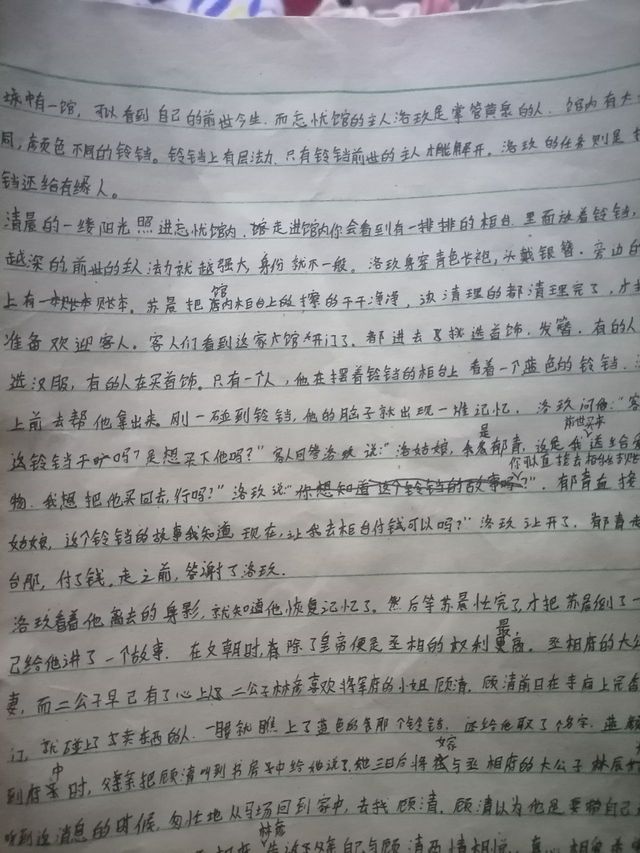 城中有一馆，可以看到自己的前世今生，而忘忧馆的主人洛玖是掌管黄泉的人。馆内有大
同，颜色不同的铃铛。铃铛上有层法力，只有铃铛前世的主人才能解开。洛玖的任务则是
铛还给有缘人。
清晨的一缕阳光照进忘忧馆内，走进馆内你会看到有一排排的柜台，里面放着铃铛，
越深的，前世的主人法力就越强大，身份就不一般。洛玖身穿青色长袍，头戴银簪。旁边的
上有一本账本。苏晨把馆内柜台上的擦的干干净净，该清理的都清理完了，才
准备欢迎客人。客人们看到这家大馆开门了，都进去挑选首饰、发簪，有的人
选汉服，有的人在买首饰。只有一个人，他在摆着铃铛的柜台上看着一个蓝色的铃铛，
上前去帮他拿出来。刚一碰到铃铛，他的脑子就出现一堆记忆。洛玖问他："客
这铃铛干吗？是想买下他吗？"客人回答洛玖说："洛姑娘，是郁青，这是我前世买来送给
物，我想把他买回去，行吗？"洛玖说："你可以直接去柜台。"郁青直接
姑娘，这个铃铛的故事我知道，现在，让我去柜台付钱可以吗？"洛玖让开了，郁青走
台那，付了钱。走之前，答谢了洛玖。
洛玖看着他离去的身影，就知道他恢复记忆了。然后等苏晨忙完了，才把苏晨倒了一
己给他讲了一个故事。在文朝时，除了皇帝便是丞相的权利最高。丞相府的大公
妻，而二公子早已有了心上人。二公子林彦喜欢将军府的小姐顾清。顾清前日在手店上完
订，就碰上了卖东西的人，一眼就瞧上了蓝色的那个铃铛，还给他取了个名字，蓝
到府中时，父亲把顾清叫到书房中给她说了，她三日后将嫁与丞相府的大公子林辰
听到这消息的时候，匆忙地从马场回到家中，去找顾清。顾清以为他是要带自己
林彦告诉父亲自己与顾清两情相悦，真心相